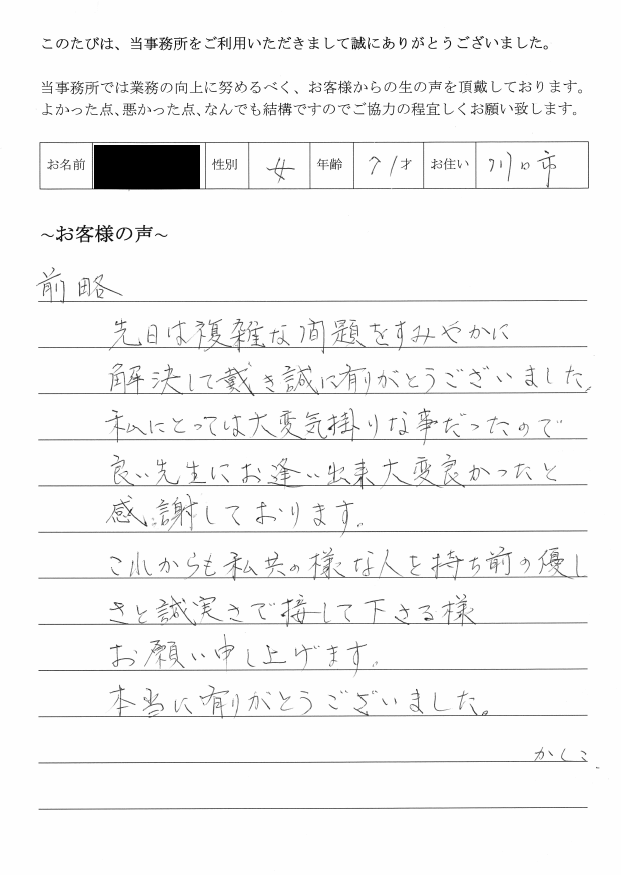 このたびは、当事務所をご利用いただきまして誠にありがとうございました。
当事務所では業務の向上に努めるべく、お客様からの生の声を頂戴しております。
よかった点、悪かった点、なんでも結構ですのでご協力の程宜しくお願い致します。
お名前 性別 女 年齢 71才 お住い 川口市
~お客様の声~
前略
先日は複雑な問題をすみやかに
解決して戴き誠に有りがとうございました。
私にとっては大変気掛りな事だったので
良い先生にお逢い出来大変良かったと
感謝しております。
これからも私共の様な人を持ち前の優し
さと誠実さで接して下さる様
お願い申し上げます。
本当に有りがとうございました。
かしこ